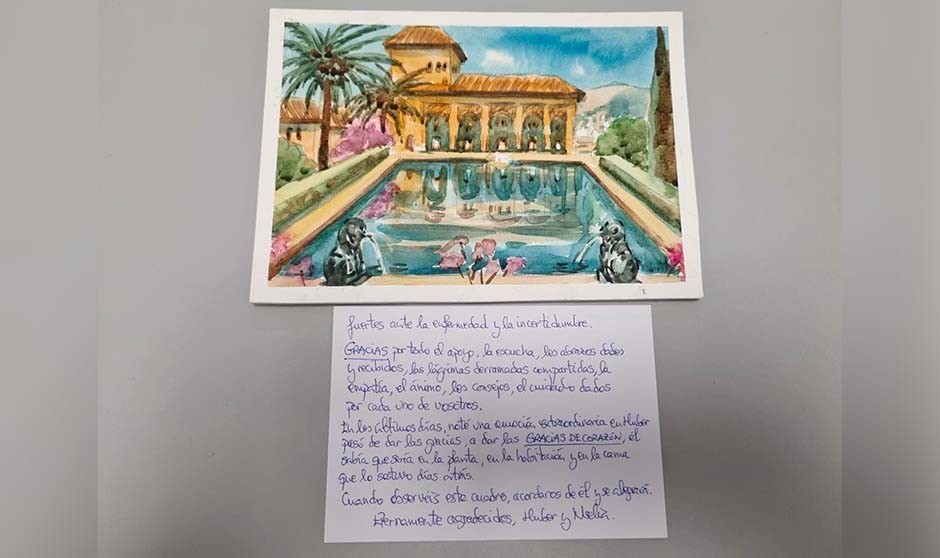 fuertes ante la enfermedad y la incertidumbre.
GRACIAS por todo el apoyo, la escucha, los abrazos dados
y recibidos, las lágrimas derramadas compartidas, la
empatía, el ánimo, los consejos, el cuidado dados
por cada uno de vosotros.
En los últimos días, noté una emoción extraordinaria en Huber
pasó de dar las gracias, a dar las GRACIAS DE CORAZÓN, él
sabía que sería en la planta, en la habitación y en la cama
que lo sostuvo días atrás.
Cuando observéis este cuadro, acordaros de él y se alegrará.
Eternamente agradecidos, Huber y Noelia.